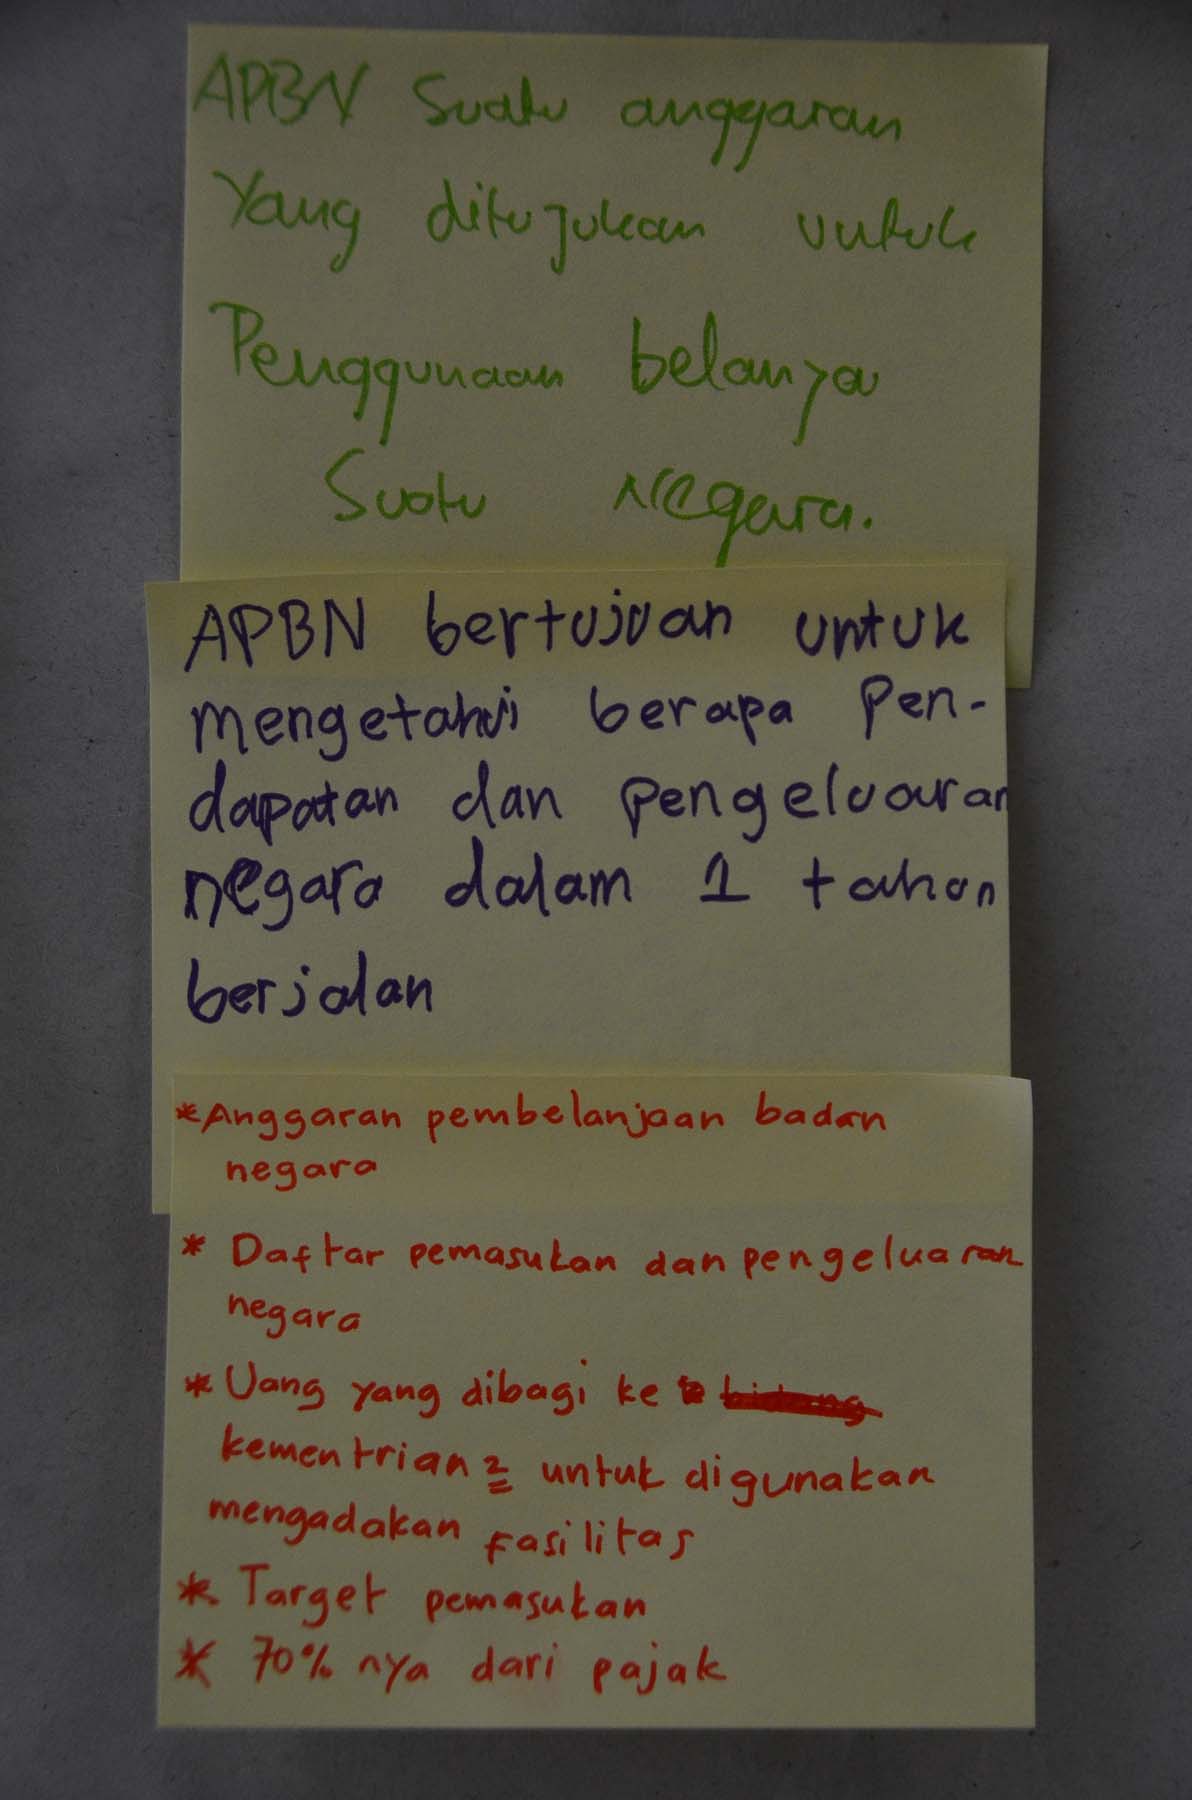 APBN Suatu anggaran
Yang ditujukan untuk
Penggunaan belanja
Suatu negara.
APBN bertujuan untuk
mengetahui berapa Pen-
dapatan dan pengeluaran
negara dalam 1 tahun
berjalan
*Anggaran pembelanjaan badan
negara
* Daftar pemasukan dan pengeluaran
negara
* Uang yang dibagi ke
kementrian2 untuk digunakan
mengadakan fasilitas
* Target pemasukan
* 70% nya dari pajak